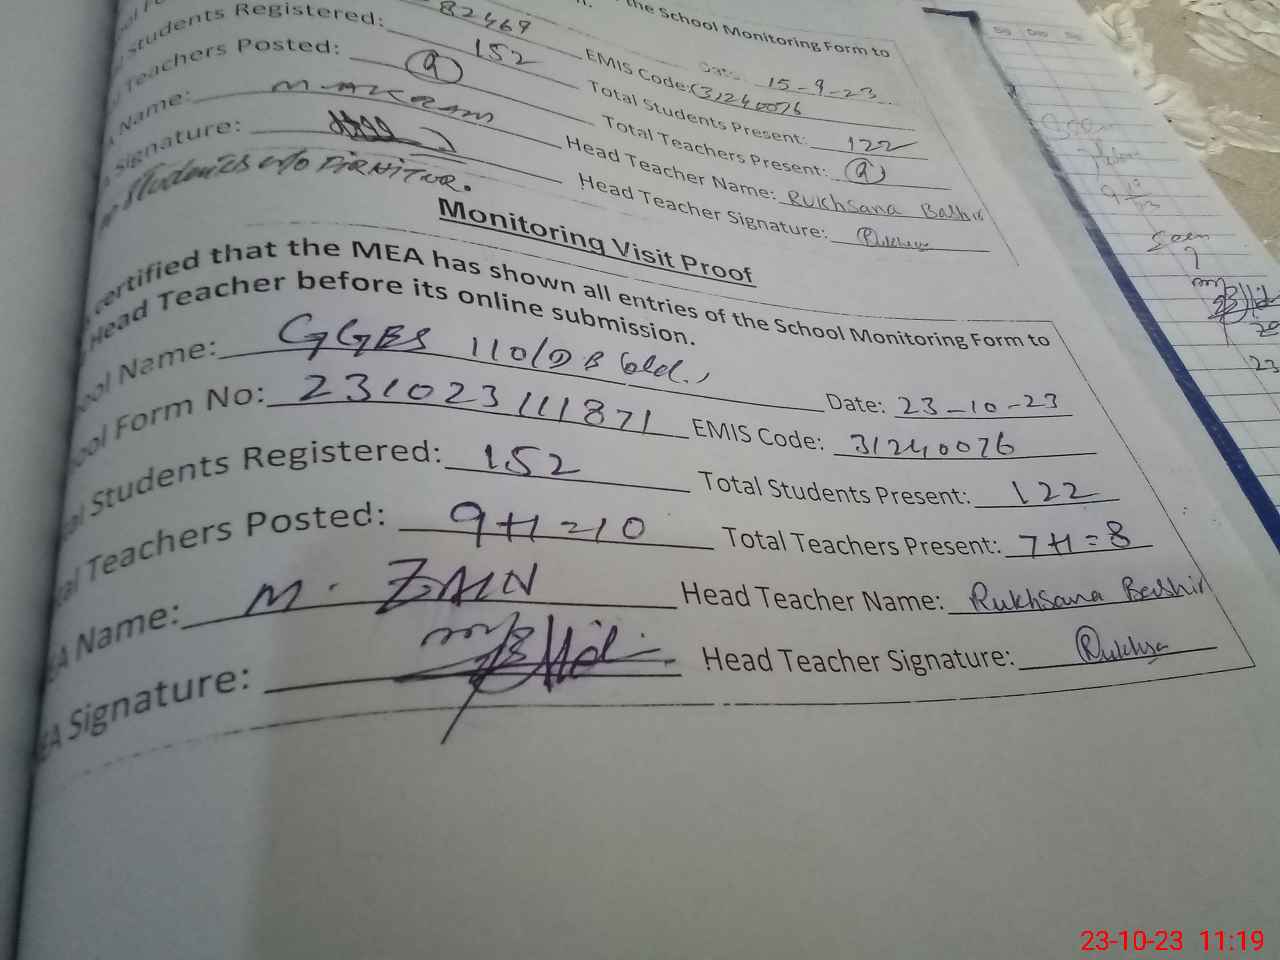 the School Monitoring Form to
82469
Date: 15-9-23
Students Registered: 152 EMIS Code: 31240076
Teachers Posted: 9 Total Students Present: 122
Name: M. Akram Total Teachers Present: 9
Signature: Head Teacher Name: Rukhsana Bashir
Head Teacher Signature: Rukhsa
Students w/o FIRNITUR.
Monitoring Visit Proof
certified that the MEA has shown all entries of the School Monitoring Form to
Head Teacher before its online submission.
ool Name: GGES 110/DB Date: 23-10-23
ool Form No: 231023111871 EMIS Code: 31240076
al Students Registered: 152 Total Students Present: 122
al Teachers Posted: 9+1=10 Total Teachers Present: 7+1=8
EA Name: M. ZAIN Head Teacher Name: Rukhsana Bashir
EA Signature: Head Teacher Signature: Rukhsa
Seen
23
23-10-23 11:19